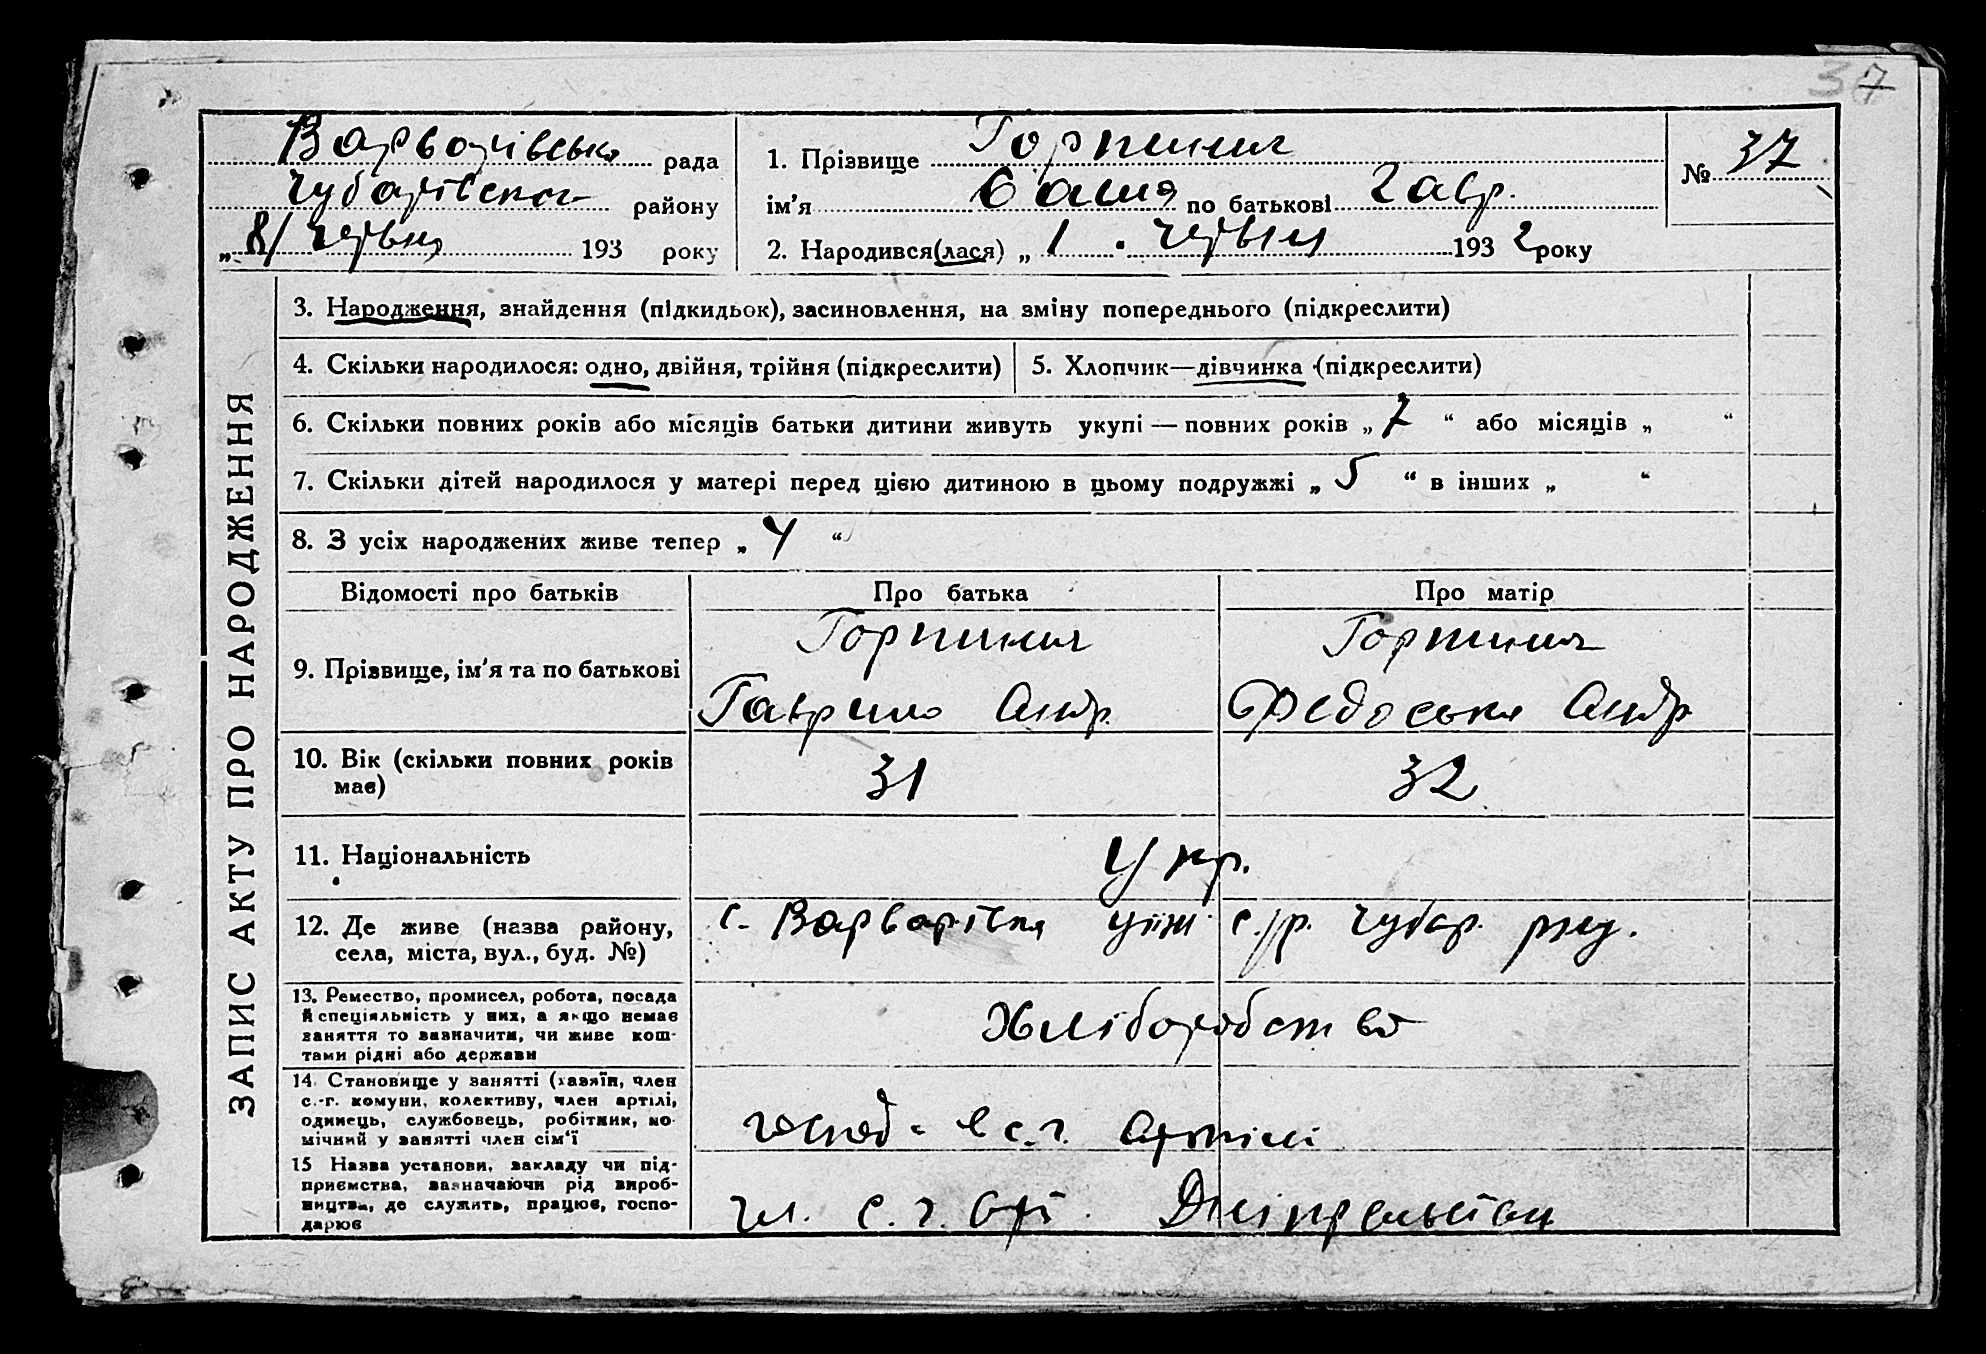 37
Варварівська рада
Чубарівськог району
„8/ червня 193 року
1. Прізвище Горпинич
ім'я по батькові Гавр.
2. Народився(лася) „1. червня 1932 року
№ 37
ЗАПИС АКТУ ПРО НАРОДЖЕННЯ
3. Народження, знайдення (підкидьок), засиновлення, на зміну попереднього (підкреслити)
4. Скільки народилося: одно, двійня, трійня (підкреслити)
5. Хлопчик—дівчинка (підкреслити)
6. Скільки повних років або місяців батьки дитини живуть укупі — повних років „7“ або місяців „ “
7. Скільки дітей народилося у матері перед цією дитиною в цьому подружжі „5“ в інших „ “
8. З усіх народжених живе тепер „4“
Відомості про батьків Про батька Про матір
9. Прізвище, ім'я та по батькові
Горпинич
Гаврило Андр.
Горпинич
Федоська Андр
10. Вік (скільки повних років
має)
31 32
11. Національність
Укр.
12. Де живе (назва району,
села, міста, вул., буд. №)
с. Варварівка с/р. Чубар. рну.
13. Ремество, промисел, робота, посада
й спеціяльність у них, а якщо немає
заняття то зазначити, чи живе кош-
тами рідні або держави
Хліборобство
14. Становище у занятті (хазяїн, член
с.-г. комуни, колективу, член артілі,
одинець, службовець, робітник, по-
мічний у занятті член сім'ї
господ. в с.г. Артілі
15 Назва установи, закладу чи під-
приємства, зазначаючи рід вироб-
ництва, де служить, працює, госпо-
дарює
чл. с.г. арт. Дніпрельстан